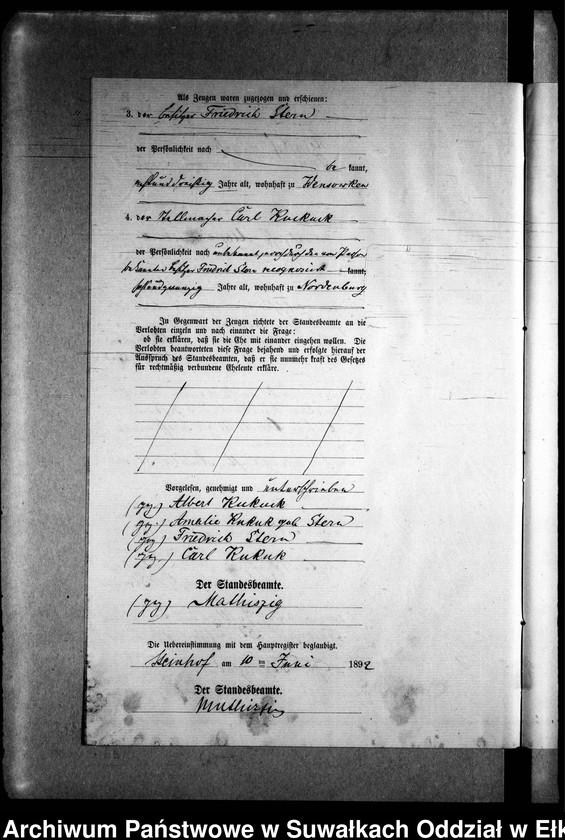 Als Zeugen waren zugezogen und erschienen:
3. der Besitzer Friedrich Stern
der Persönlichkeit nach
be kannt,
Jahre alt, wohnhaft zu Wensowken
4. der Stellmacher Carl Kukuk
der Persönlichkeit nach unbekannt, jedoch durch den von Person
bekannten Besitzer Friedrich Stern recognoscirt kannt,
Jahre alt, wohnhaft zu Nordenburg
In Gegenwart der Zeugen richtete der Standesbeamte an die
Verlobten einzeln und nach einander die Frage:
ob sie erklären, daß sie die Ehe mit einander eingehen wollen. Die
Verlobten beantworteten diese Frage bejahend und erfolgte hierauf der
Ausspruch des Standesbeamten, daß er sie nunmehr kraft des Gesetzes
für rechtmäßig verbundene Eheleute erkläre.
Vorgelesen, genehmigt und unterschrieben
(gez.) Albert Kukuk
(gez.) Amalie Kukuk geb Stern
(gez.) Friedrich Stern
(gez.) Carl Kukuk
Der Standesbeamte.
(gez) Mathiszig
Die Uebereinstimmung mit dem Hauptregister beglaubigt.
Steinhof am 10 ten Juni 1892
Der Standesbeamte.
Mathiszig
Archiwum Państwowe w Suwałkach Oddział w Ełk